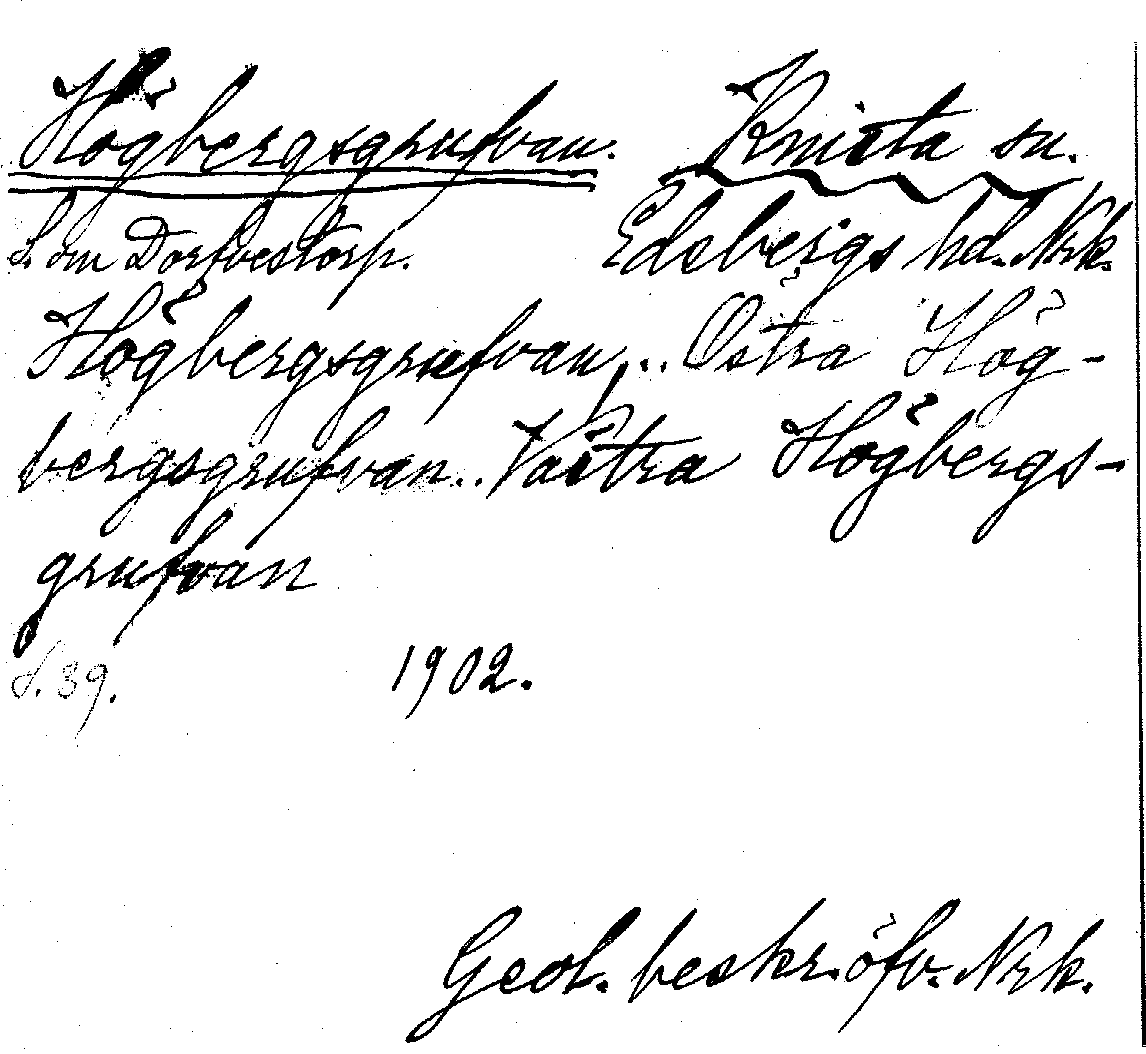 Högbergsgrufvan. Knista sn.
S. om Dorfvestorp. Edsbergs hd. Nrk.
Högbergsgrufvan,.. Östra Hög-
bergsgrufvan.. Västra Högbergs-
grufvan
s. 39. 1902.
Geol. beskr. öfv. Nrk.